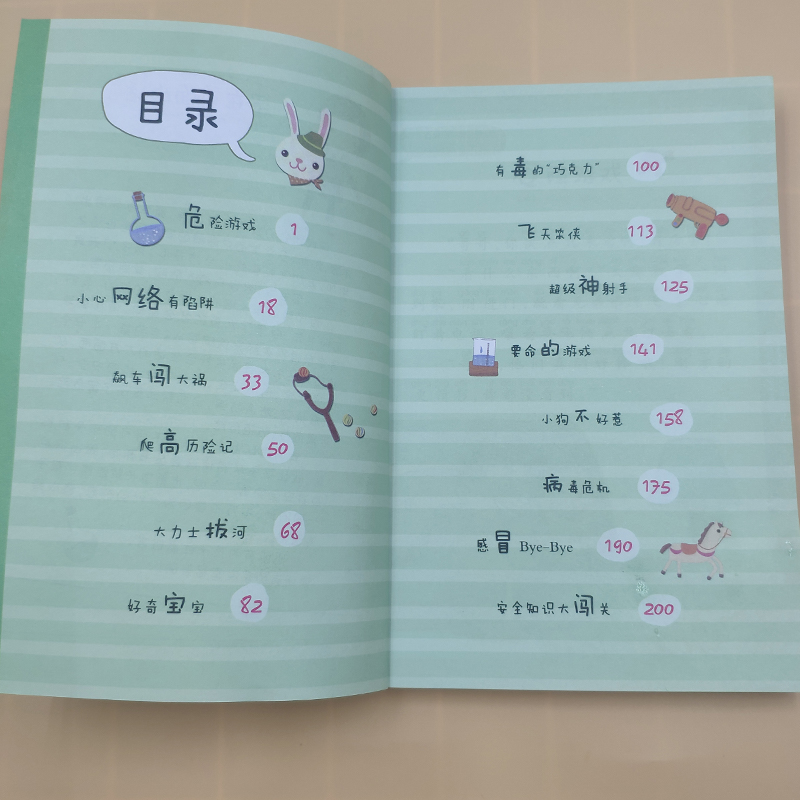 目录
危险游戏 1
小心网络有陷阱 18
飙车闯大祸 33
爬高历险记 50
大力士拔河 68
好奇宝宝 82
有毒的“巧克力” 100
飞天笨侠 113
超级神射手 125
要命的游戏 141
小狗不好惹 158
病毒危机 175
感冒 Bye-Bye 190
安全知识大闯关 200